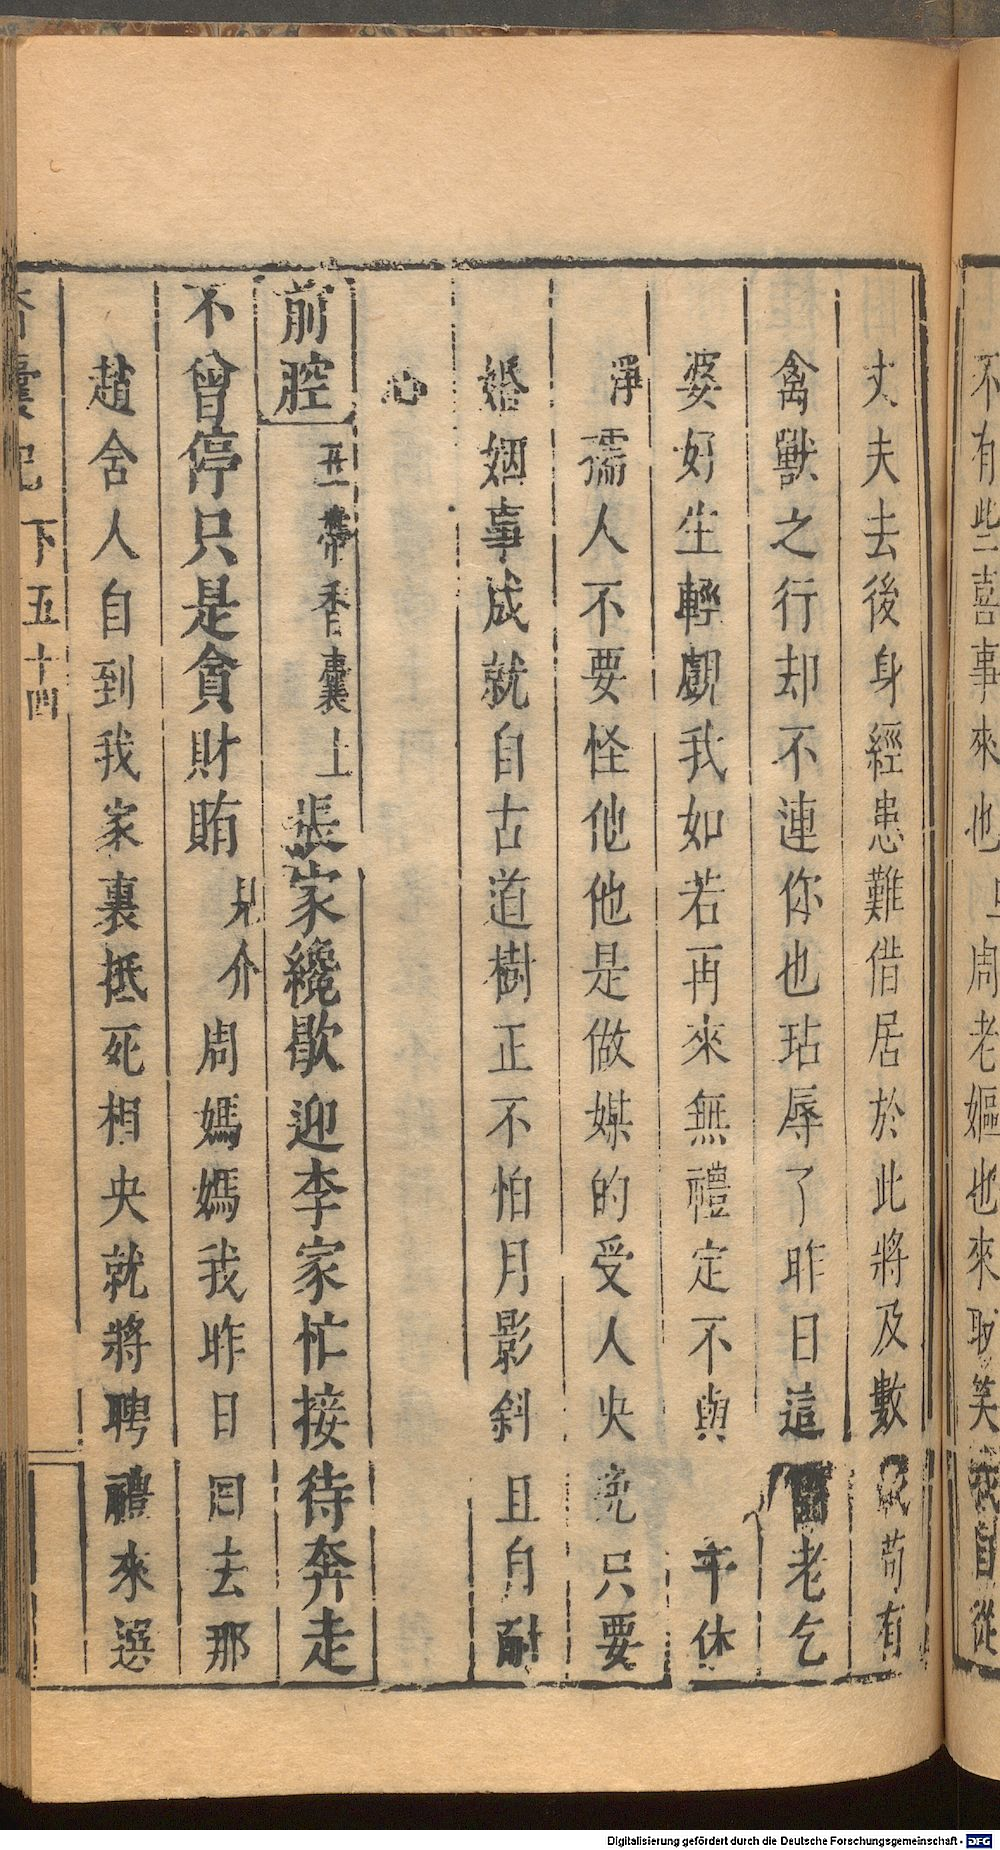 不有些喜事來也 周老嫗也來取笑我自從
丈夫去後身經患難借居於此將及數 苟有
禽獸之行却不連你也玷辱了昨日這 老乞
婆好生輕覷我如若再來無禮定不與 干休
淨 孺人不要怪他他是做媒的受人央 只要
婚姻事成就自古道樹正不怕月影斜且自耐
心
前腔 丑帶香囊上 張家纔歇迎李家忙接待奔走
不曾停只是貪財賄 見介 周媽媽我昨日回去那
趙舍人自到我家裏抵死相央就將聘禮來選
香囊記 下 五十四
Digitalisierung gefördert durch die Deutsche Forschungsgemeinschaft - DFG